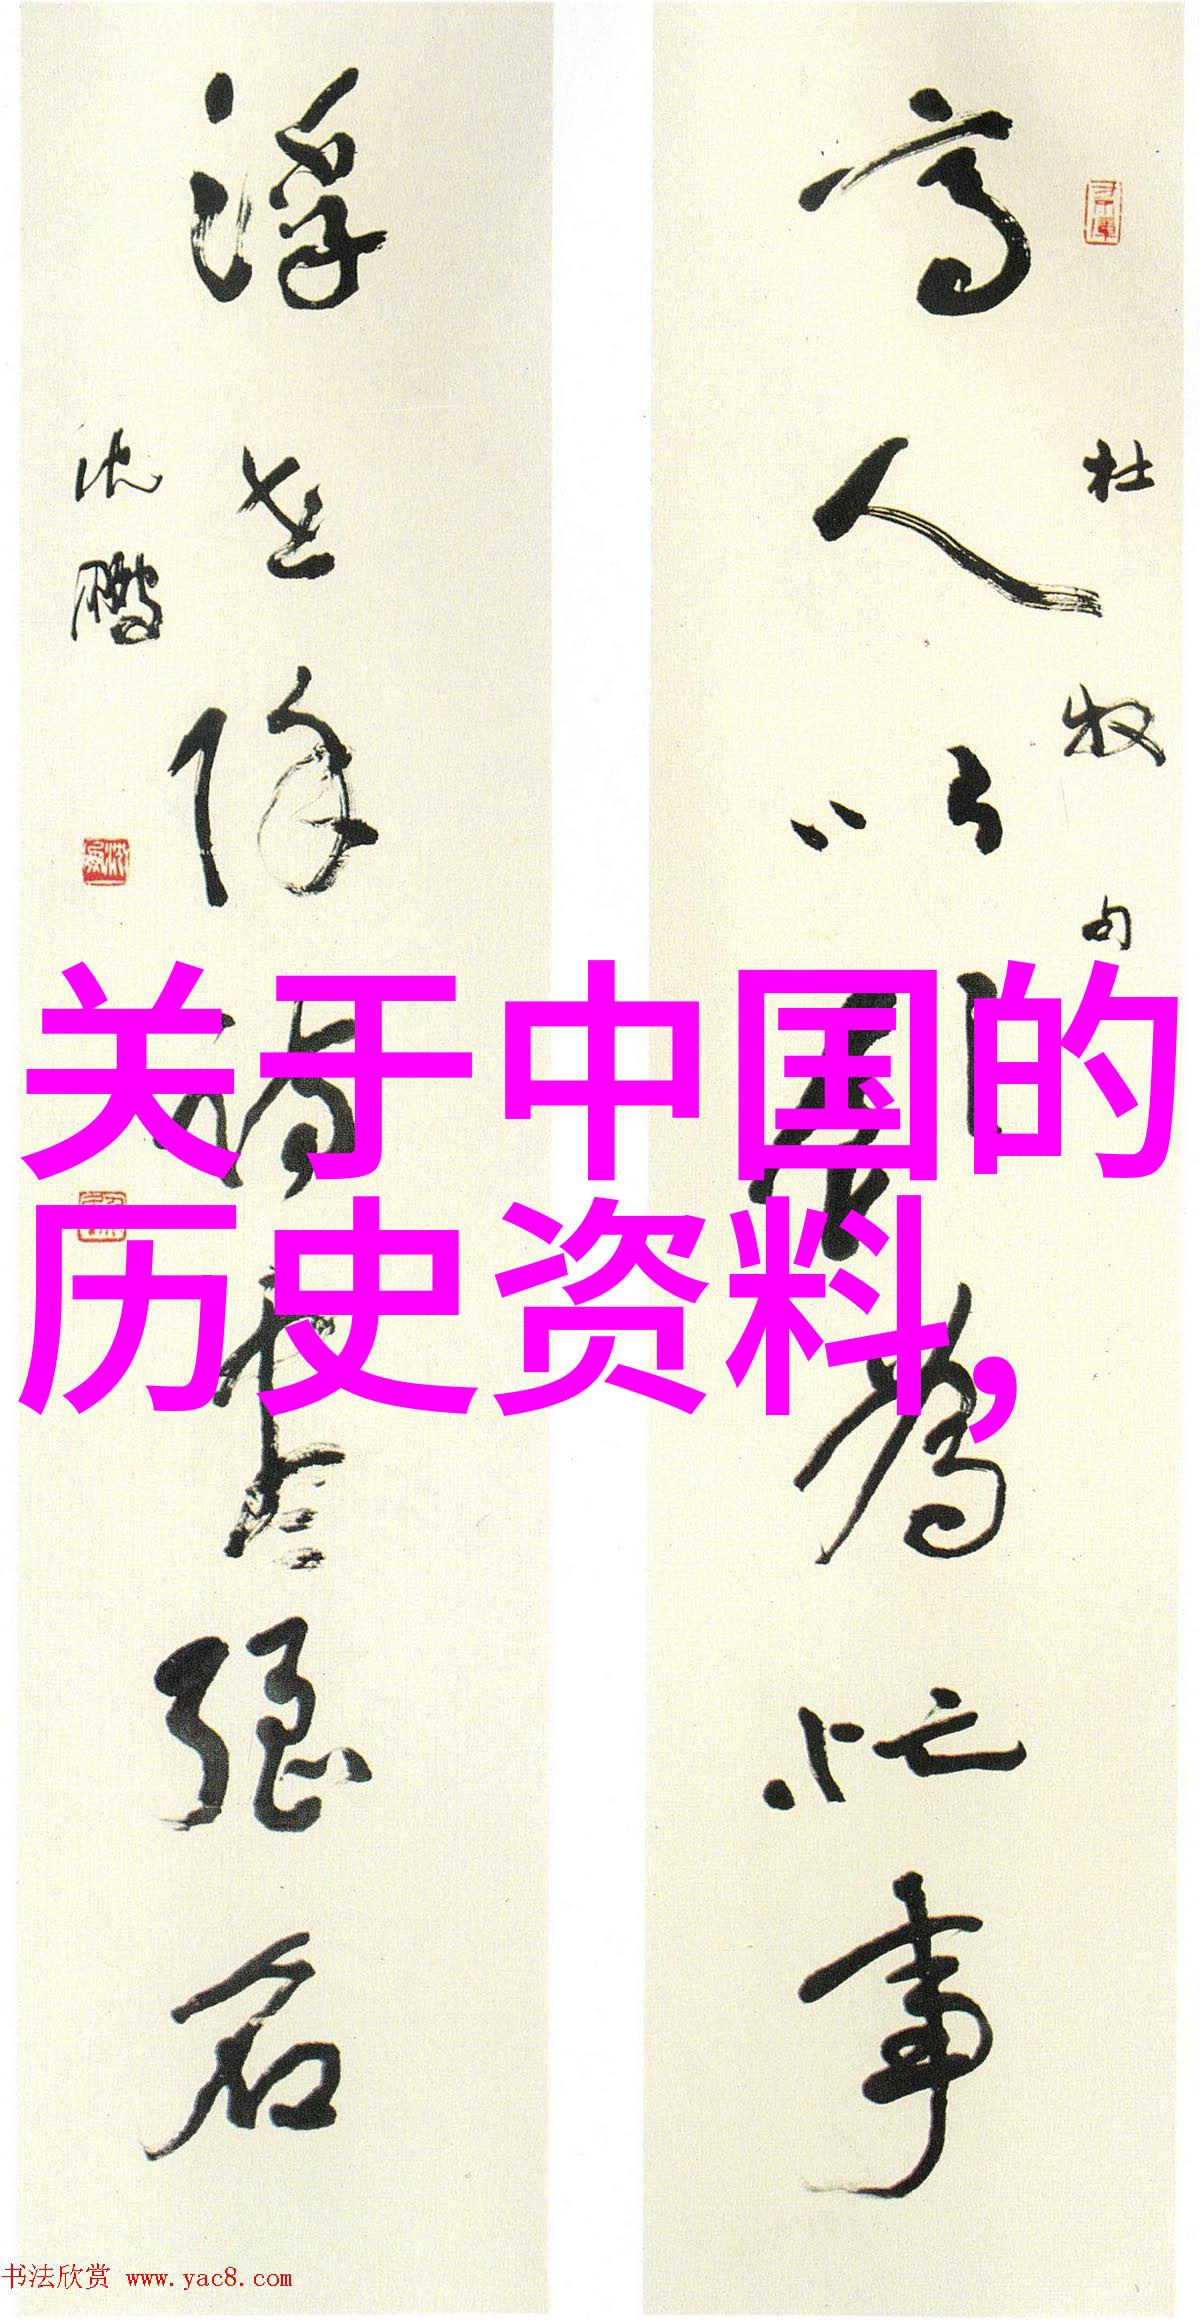 高人以饮为忙事
杜牧句
浮世除诗尽强名
沈鹏
关于中国的
历史资料,
书法欣赏 www.yac8.com